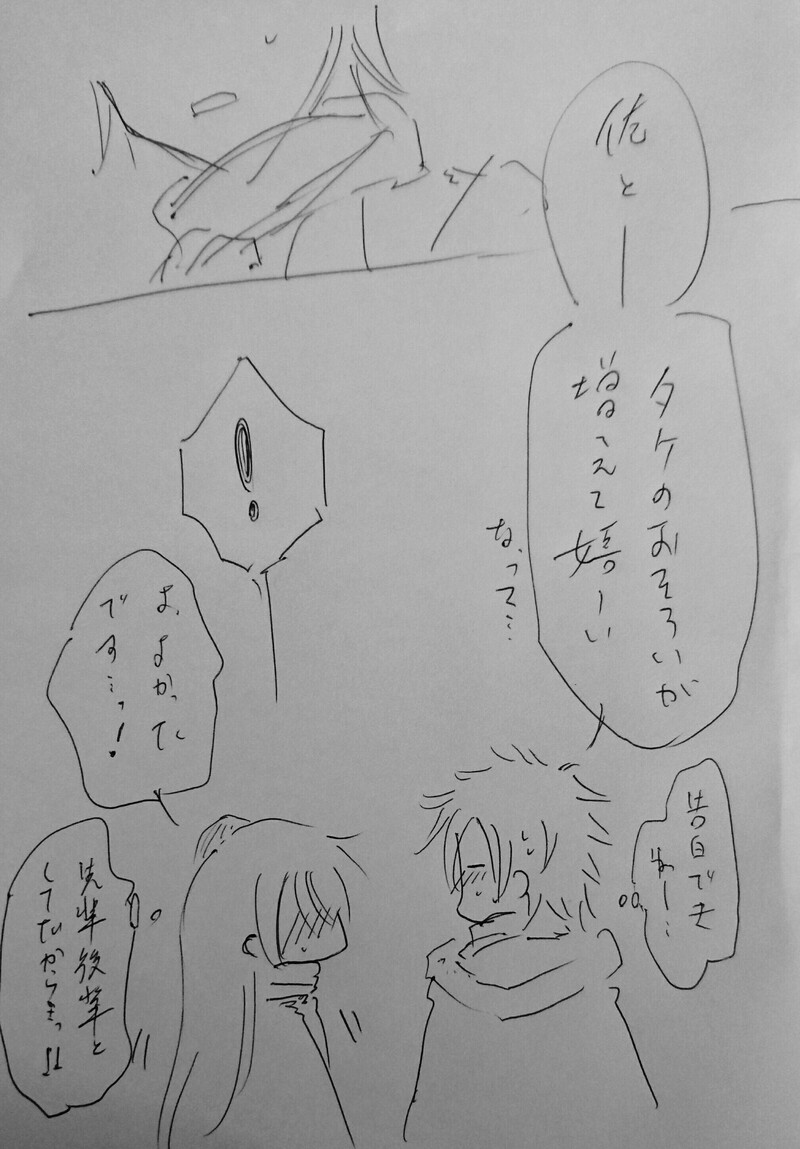 佐とー
タケのおそろいが
増えて嬉しい
なって…
！
よ、よかった
です…っ！
告白できねー…
先輩後輩と
してだからきっ!!